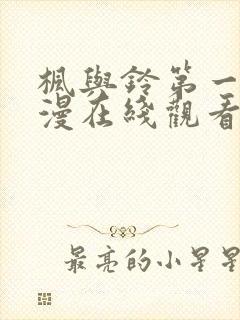 楓與鈴第一
漫在綫觀看
最亮的小星星